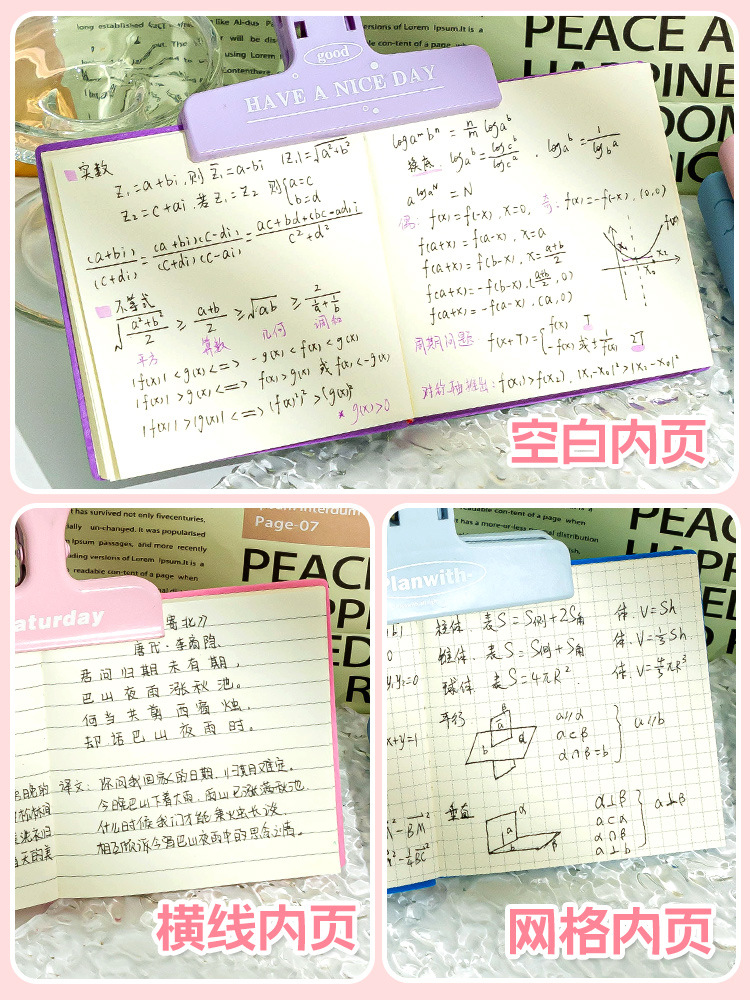 long established fact
like Al-dus Pa
using Lorem Ipsum
versions of Lorem Ipsum.It is a
readable con-tent of a page when
PEACE A
HAPPINE
good
HAVE A NICE DAY
实数
Z₁=a+bi, 则 Z̄₁=a-bi |Z₁|=√a²+b²
Z₂=c+ai, 若 Z₁=Z₂ 则{a=c
b=d
(a+bi)/(c+di)=(a+bi)(c-di)/(c+di)(c-ai)=ac+bd+(bc-ad)i/c²+d²
不等式
√a²+b²/2 ≥ a+b/2 ≥ √ab ≥ 2/(1/a+1/b)
平方 算数 几何 调和
|f(x)|<g(x)<=> -g(x)<f(x)<g(x)
|f(x)|>g(x)<=> f(x)>g(x) 或 f(x)<-g(x)
|f(x)|>|g(x)|<=> (f(x)²)²>(g(x))²
* g(x)>0
logaᵐbⁿ = n/m logaᵇ
换底. logaᵇ=logcᵇ/logcᵃ . logaᵇ=1/logbᵃ
a^logaᴺ = N
偶: f(x)=f(-x), x=0, 奇: f(x)=-f(-x), (0,0)
f(a+x)=f(a-x), x=a
f(a+x)=f(b-x), x=a+b/2
f(a+x)=-f(b-x), (a+b/2,0)
f(a+x)=-f(a-x), (a,0)
f(x)
x₁ x₀ x₂
周期问题 f(x+T)={f(x) T
-f(x) 或 ±1/f(x) 2T
对称轴推出: f(x₁)>f(x₂), |x₁-x₀|²>|x₂-x₀|²
空白内页
t has survived not only fivecenturies,
ially un-changed. It was popularised
Ipsum passages, and more recently
ding versions of Lorem Ipsum.It is a
readable con-tent of a page when
Page-07
PEAC
aturday
寄北》
唐代·李商隐
君问归期未有期，
巴山夜雨涨秋池。
何当共剪西窗烛，
却话巴山夜雨时。
译文: 你问我回家的日期，归期难定。
今晚巴山下着大雨，雨水已涨满秋池
什么时候我们才能秉烛长谈
相互倾诉今宵巴山夜雨中的思念之情。
横线内页
readable con-tent of a page when
it has a more-or-less normal distribution
PEAC
HAPP
Planwith-
柱体. 表S=S侧+2S底 体. V=Sh
锥体. 表S=S侧+S底 体. V=1/3Sh
球体. 表S=4πR². 体. V=4/3πR³
x+y=1
平行
β
a
α
b
a∥α
a⊂β
α∩β=b
} a∥b
垂直
α
a
b
β
α⊥β
a⊂α
α∩β
a⊥b
} a⊥β
-BM²
-¼BC²
网格内页